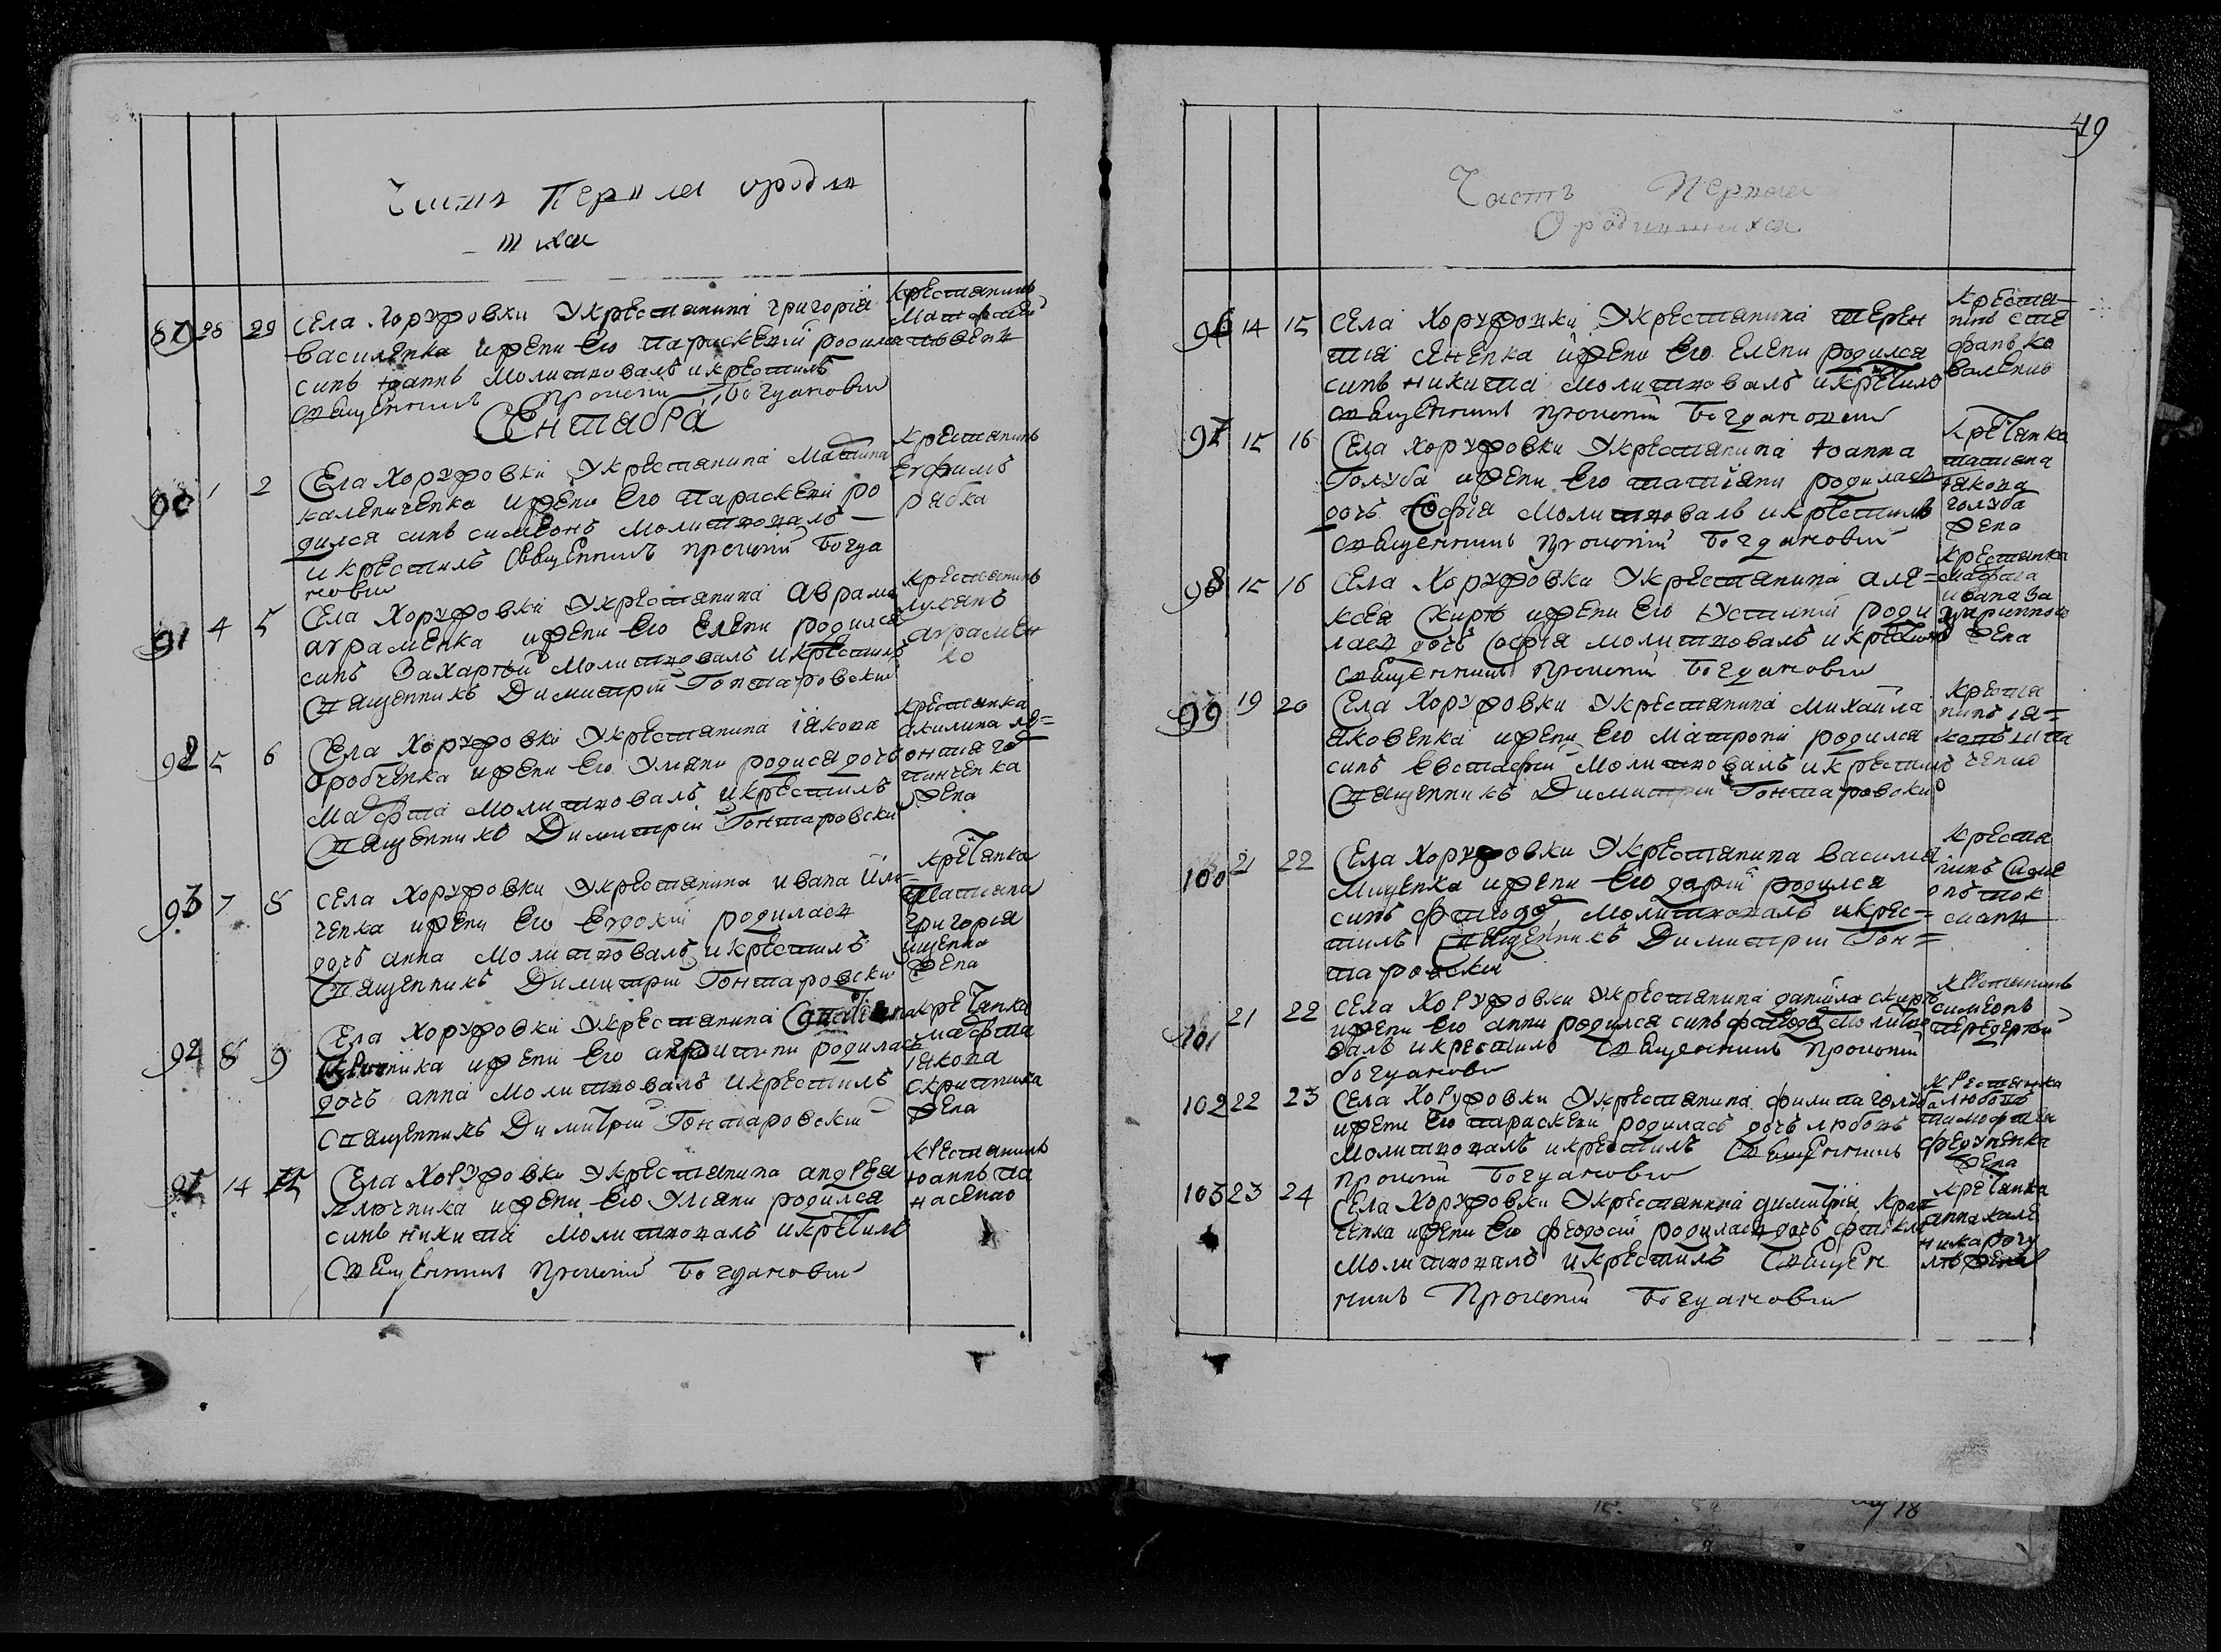 Часть Первая ороди
шихся
89 28 29 Села Хоружовки Укрестянина григорія
василенка ижени Его параскевіи родился
синъ Іоаннъ молитвовалъ икрестилъ
священникъ Прокопій Богдановичъ
крестянинъ
Матфей
Сентября
90 1 2 Села Хоружовки Укрестянина
калениченка ижени Его Параскеви ро
дился синъ симеонъ молитвовалъ
и крестилъ Священникъ прокопій Богда
новичъ
крестянинъ
Ефимъ
рябка
91 4 5 Села Хоружовки Укрестянина Аврама
авраменка ижени Его Елени родился
синъ Захарій молитвовалъ икрестилъ
Священникъ Димитрій Гонтаровски
крестянинъ
лукянъ
аврамен
ко
92 5 6 Села Хоружовки Укрестянина іакова
оробченка ижени Его Уляни родися дочъ
Марфа молитвовалъ икрестилъ
Священникъ Димитрій Гонтаровски
крестянка
акилина ле=
онтия
жена
93 7 8 Села Хоружовки Укрестянина ивана
ченка ижени Его Евдокіи родилася
дочъ анна молитвовалъ икрестилъ
Священникъ Димитрій Гонтаровски
крестянка
Татияна
григорія
ищенка
жена
94 8 9 Села Хоружовки Укрестянина
ижени Его родилася
дочъ анна молитвовалъ икрестилъ
Священникъ Димитрій Гонтаровскій
крестянка
марфа
іакова
скрипника
жена
95 14 15 Села Хоружовки Укрестянина андрея
ключника ижени Его Уляни родился
синъ никита молитвовалъ икрестилъ
Священникъ Прокопій Богдановичъ
крестянинъ
Іоаннъ па
насенко
49
Часть Первая
Ородившихся
96 14 15 Села Хоружовки Укрестянина терен
тія сененка ижени Его Елени родился
синъ никита молитвовалъ икрестилъ
священникъ прокопій Богдановичъ
крестя-
нинъ сте
фанъ ко
валенко
97 15 16 Села Хоружовки Укрестянина Іоанна
Голуба ижени Его татіяни родиласъ
дочъ Софія молитвовалъ икрестилъ
священникъ прокопій Богдановичъ
крестянка
татияна
іакова
голуба
жена
98 15 16 Села Хоружовки Укрестянина але=
ксея Скирт ижени Его Устиніи роди
лася дочъ Софія молитвовалъ икрестилъ
священникъ прокопій Богдановичъ
крестянка
марфа
ивана за
жена
99 19 20 Села Хоружовки Укрестянина михаила
яковенка ижени Его матрони родился
синъ Евстафій молитвовалъ икрестилъ
Священникъ Димитрій Гонтаровски
крестя
нинъ іа=
ченко
100 21 22 Села Хоружовки Укрестянина василия
мищенка ижени Его даріи родился
синъ молитвовалъ икрес=
тилъ Священникъ Димитрій Гон=
таровски
креста
нинъ
101 21 22 Села Хоружовки Укрестянина даніила скирт
ижени Его анни родился синъ молитво
валъ икрестилъ Священникъ Прокопій
богданови
крестянинъ
симеонъ
102 22 23 Села Хоружовки Укрестянина филипа голуба
ижени Его параскеви родиласъ дочъ любовъ
Молитвовалъ икрестилъ Священникъ
прокопій Богдановичъ
крестянка
любовъ
тимофея
федуненка
жена
103 23 24 Села Хоружовки Укрестянина димитрія крав
ченка ижени Его феодосіи родилася дочъ
Молитвовалъ икрестилъ Священ
никъ Прокопій Богдановичъ
крестянка
анна кале
ника рогу
лѣ жена